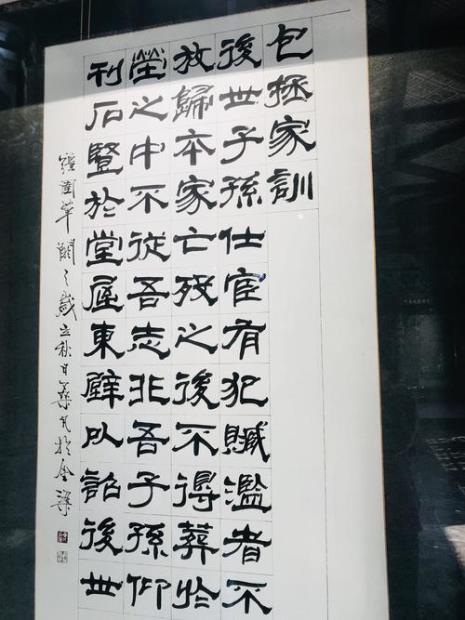 包拯家訓
後世子孫仕宦有犯贓濫者不
放歸本家亡殁之後不得葬於
塋之中不從吾志非吾子孫仰
刊石豎於堂屋東壁以詔後世
歲立秋日